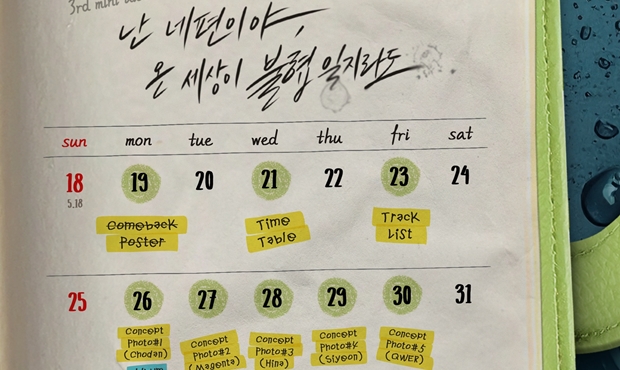 3rd mini
난 네편이야,
온 세상이 불협일지라도
sun mon tue wed thu fri sat
18 19 20 21 22 23 24
5.18
Comeback Time Track
Poster Table List
25 26 27 28 29 30 31
Concept Concept Concept Concept Concept
Photo#1 Photo#2 Photo#3 Photo#4 Photo#5
(Chodan) (Magenta) (Hina) (Siyeon) (QWER)